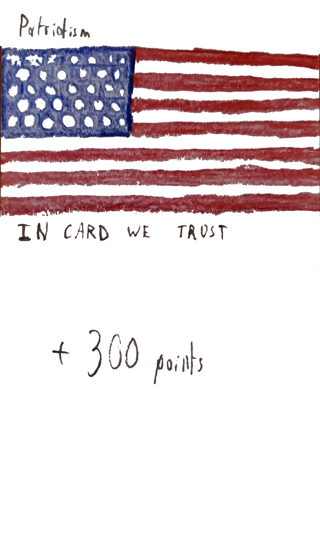 Patriotism
IN CARD WE TRUST
+ 300 points